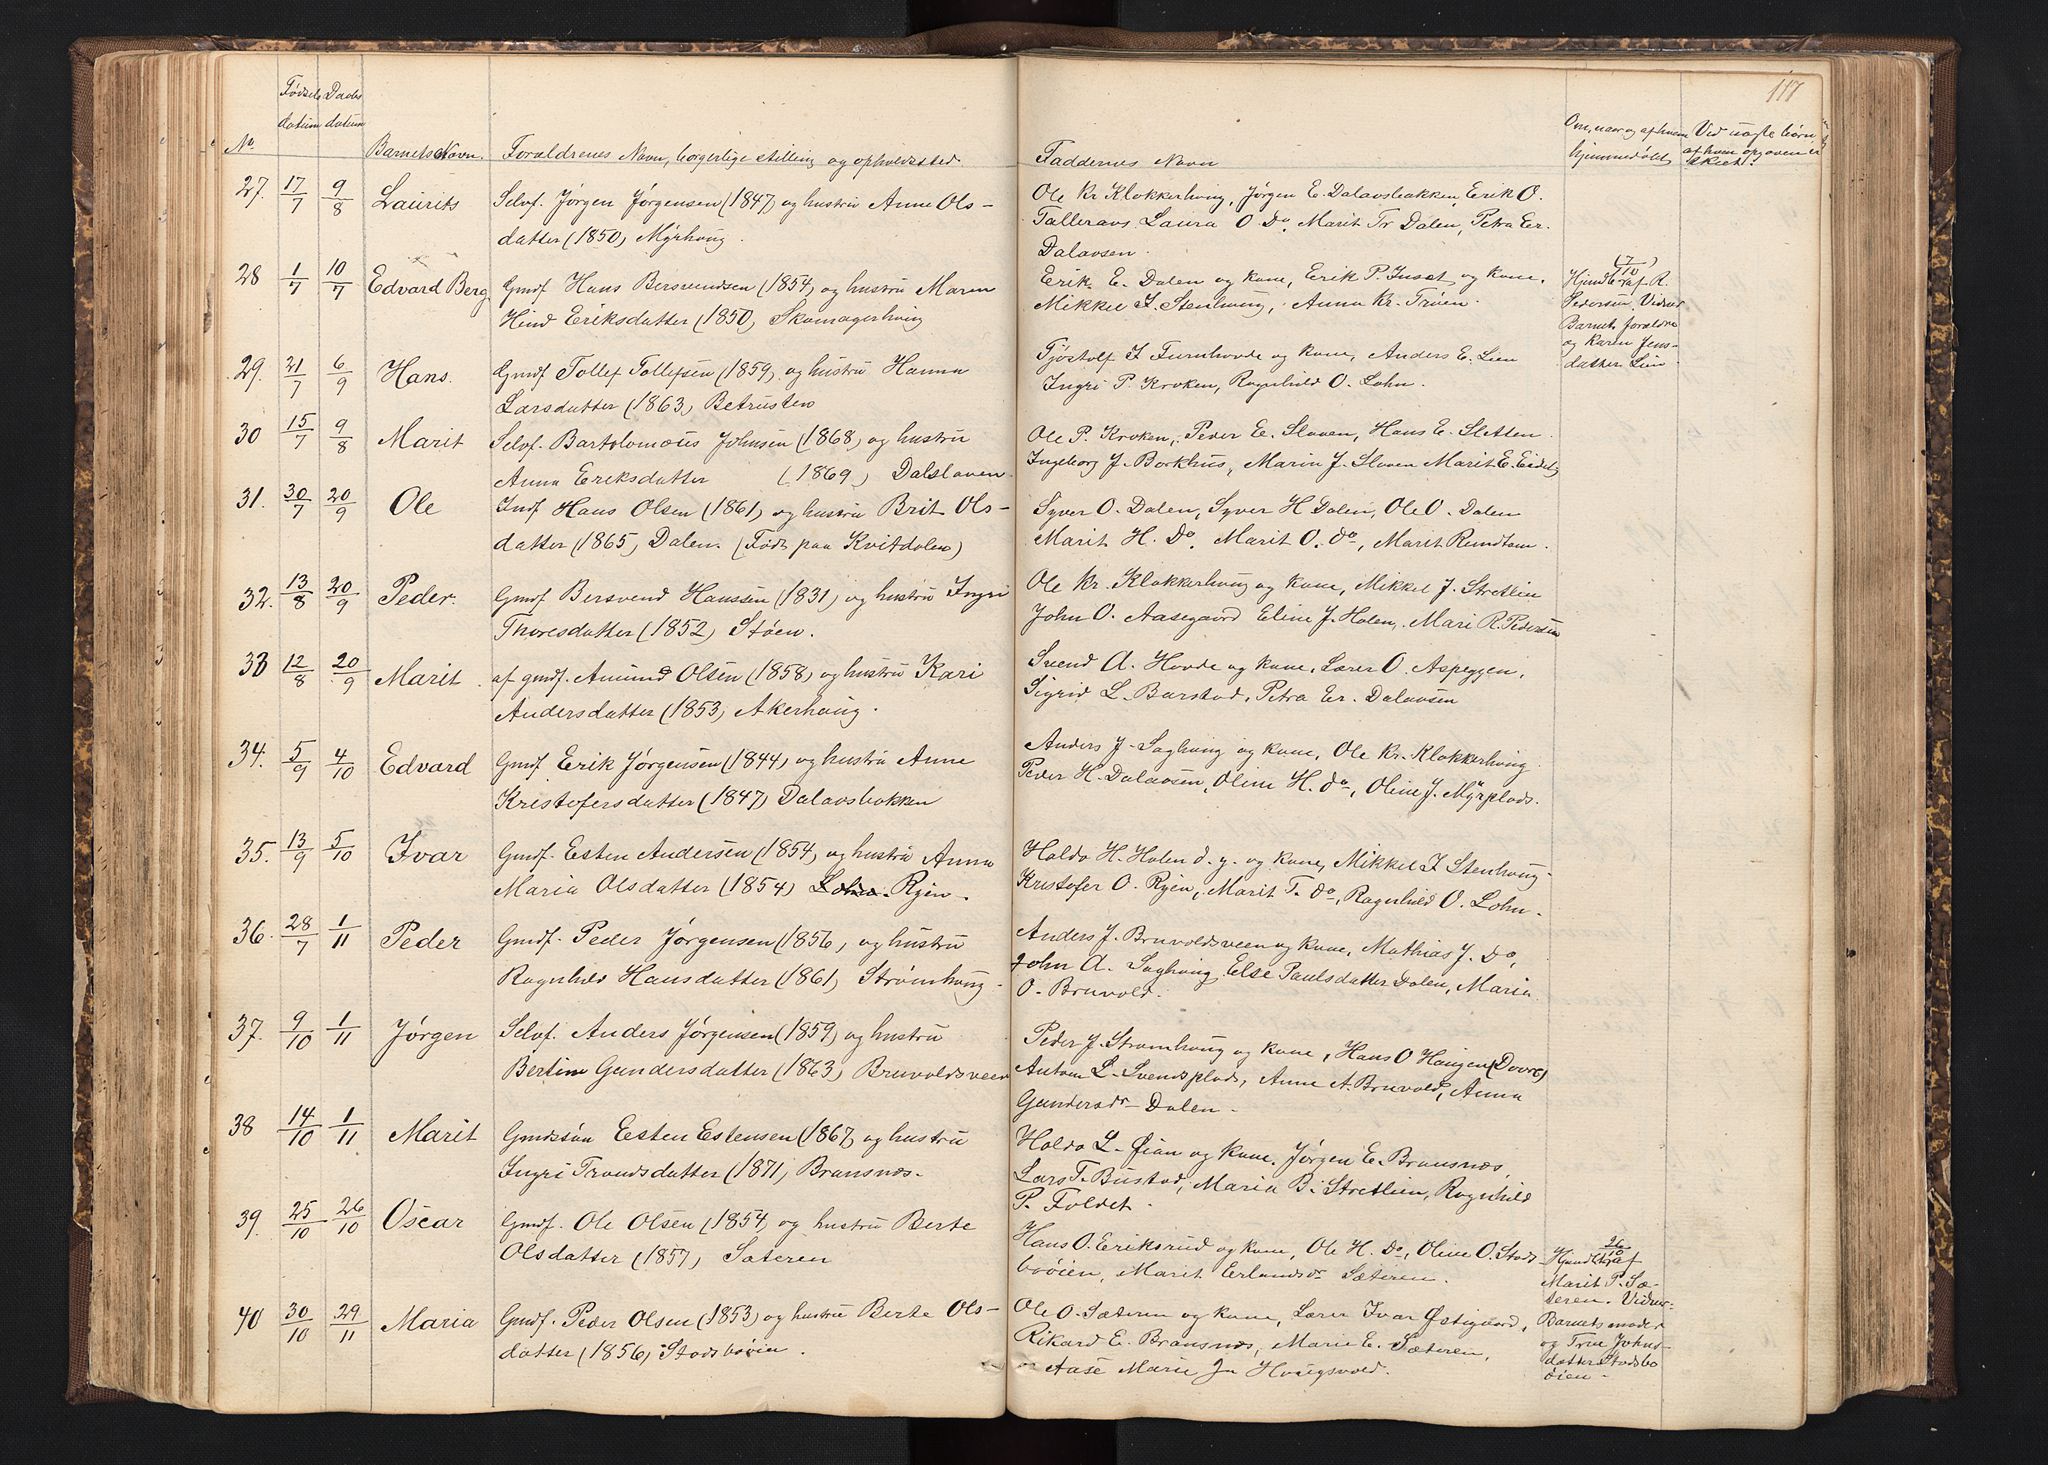 117
Fødsels Daabs
datum datum
No Barnets Navn. Forældrenes Navn, borgerlige stilling og opholdssted.
Faddernes Navn
Om, naar og af hvem
hjemmedøbt
Ved uægte børn
af hvem opgaven er
skeet?
27. 17/7 9/8 Laurits Selvf. Jørgen Jørgensen (1847) og hustru Anne Ols-
datter (1850) Myrhaug.
Ole Kr Klokkerhaug, Jørgen E. Dalavsbakken, Erik O.
Talleraas Laura O Do, Marit Tr Dalen, Petra Er.
Dalaosen.
28 1/7 10/7 Edvard Berg Gmdf Hans Bersvendsen (1854) og hustru Maren
Hind Eriksdatter (1850) Skomagerhaug
Erik E. Dalen og kone, Erik P. Inset og kone,
Mikkel I. Stenhaug, Anna Kr. Trøen.
(7/10)
Hjmdbt af R.
Pedersen. Vidner
Barnets forældre
og Karen Jens-
datter Lien
29. 21/7 6/9 Hans. Gmdf Tollef Tollefsen (1859) og hustru Hanna
Larsdatter (1863) Betrusten
Tjøstolf I Furuhovde og kone, Anders E. Lien
Ingri P. Kroken, Ragnhild O. Lohn.
30 15/7 9/8 Marit Selvf. Bartolomæus Johnsen (1868) og hustru
Anna Eriksdatter (1869) Dalslaaen
Ole P. Kroken, Peder E. Slaaen, Hans E. Sletten
Ingeborg J. Borkhus, Marin J. Slaaen Marit E. Eidet
31. 30/7 20/9 Ole Indf Hans Olsen (1861) og hustru Brit Ols-
datter (1865) Dalen. (Født paa Kvitdalen)
Syver O. Dalen, Syver H Dalen, Ole O. Dalen
Marit H. Do, Marit O. do, Marit Rundtom.
32. 13/8 20/9 Peder. Gmdf Bersvend Hanssen (1831) og hustru Ingri
Thoresdatter (1852) Støen.
Ole Kr. Klokkerhaug og kone, Mikkel J. Stretlien
John O. Aasegaard Eline J. Holen, Mari R. Pedersen
33 12/8 20/9 Marit af gmdf. Amund Olsen (1858) og hustru Kari
Andersdatter (1853) Akerhaug.
Svend A. Hovde og kone, Lærer O. Aspeggen,
Sigrid L. Barstad, Petra Er. Dalaosen
34. 5/9 4/10 Edvard Gmdf Erik Jørgensen (1844) og hustru Anne
Kristofersdatter (1847) Dalavsbakken
Anders J. Saghaug og kone, Ole Kr. Klokkerhaug
Peder H. Dalaosen, Oline H. do, Oline J. Myrplads.
35. 13/9 5/10 Ivar Gmdf. Esten Andersen (1854) og hustru Anna
Maria Olsdatter (1854) Ryen.
Haldo H. Holen d. y. og kone, Mikkel I Stenhaug
Kristofer O. Ryen, Marit T. do, Ragnhild O. Lohn.
36. 28/7 1/11 Peder Gmdf. Peder Jørgensen (1856) og hustru
Ragnhild Hansdatter (1861) Strømhaug
Anders J. Bruvoldsveen og kone, Mathias J. Do,
John A. Saghaug, Else Paulsdatter Dalen, Maria
O. Bruvold.
37. 9/10 1/11 Jørgen Selvf. Anders Jørgensen (1859) og hustru
Bertine Gundersdatter (1863) Bruvoldsveen
Peder J. Strømhaug og kone, Hans O Haugen (Dovre)
Antom L. Svendsplads, Anne A. Bruvold, Anna
Gundersdr Dalen.
38 14/10 1/11 Marit Gmdssøn Eesten Estensen (1867) og hustru
Ingri Trondsdatter (1871) Brænsnæs.
Haldo L. Øian og kone, Jørgen E. Brænsnæs,
Lars T. Bustad, Maria B. Stretlien, Ragnhild
P. Foldet.
39. 25/10 26/10 Oscar Gmdf. Ole Olsen (1854) og hustru Berte
Olsdatter (1857) Sæteren
Hans O. Eriksrud og kone, Ole H. Do, Oline O. Stads
buøien, Marit Erlandsdr Sæteren.
26/10
Hjmdbt af
Marit P. Sæ-
teren. Vidner
Barnets moder
og True Johns-
datter Stadsbu
øien.
40 30/10 29/11 Maria Gmdf. Peder Olsen (1853) og hustru Berte Ols-
datter (1856) Stadsbuøien.
Ole O. Sæteren og kone, Lærer Ivar Østigaard,
Rikard E. Brænsnæs, Marie E. Sæteren,
Aase Marie Jn Haugsvold.